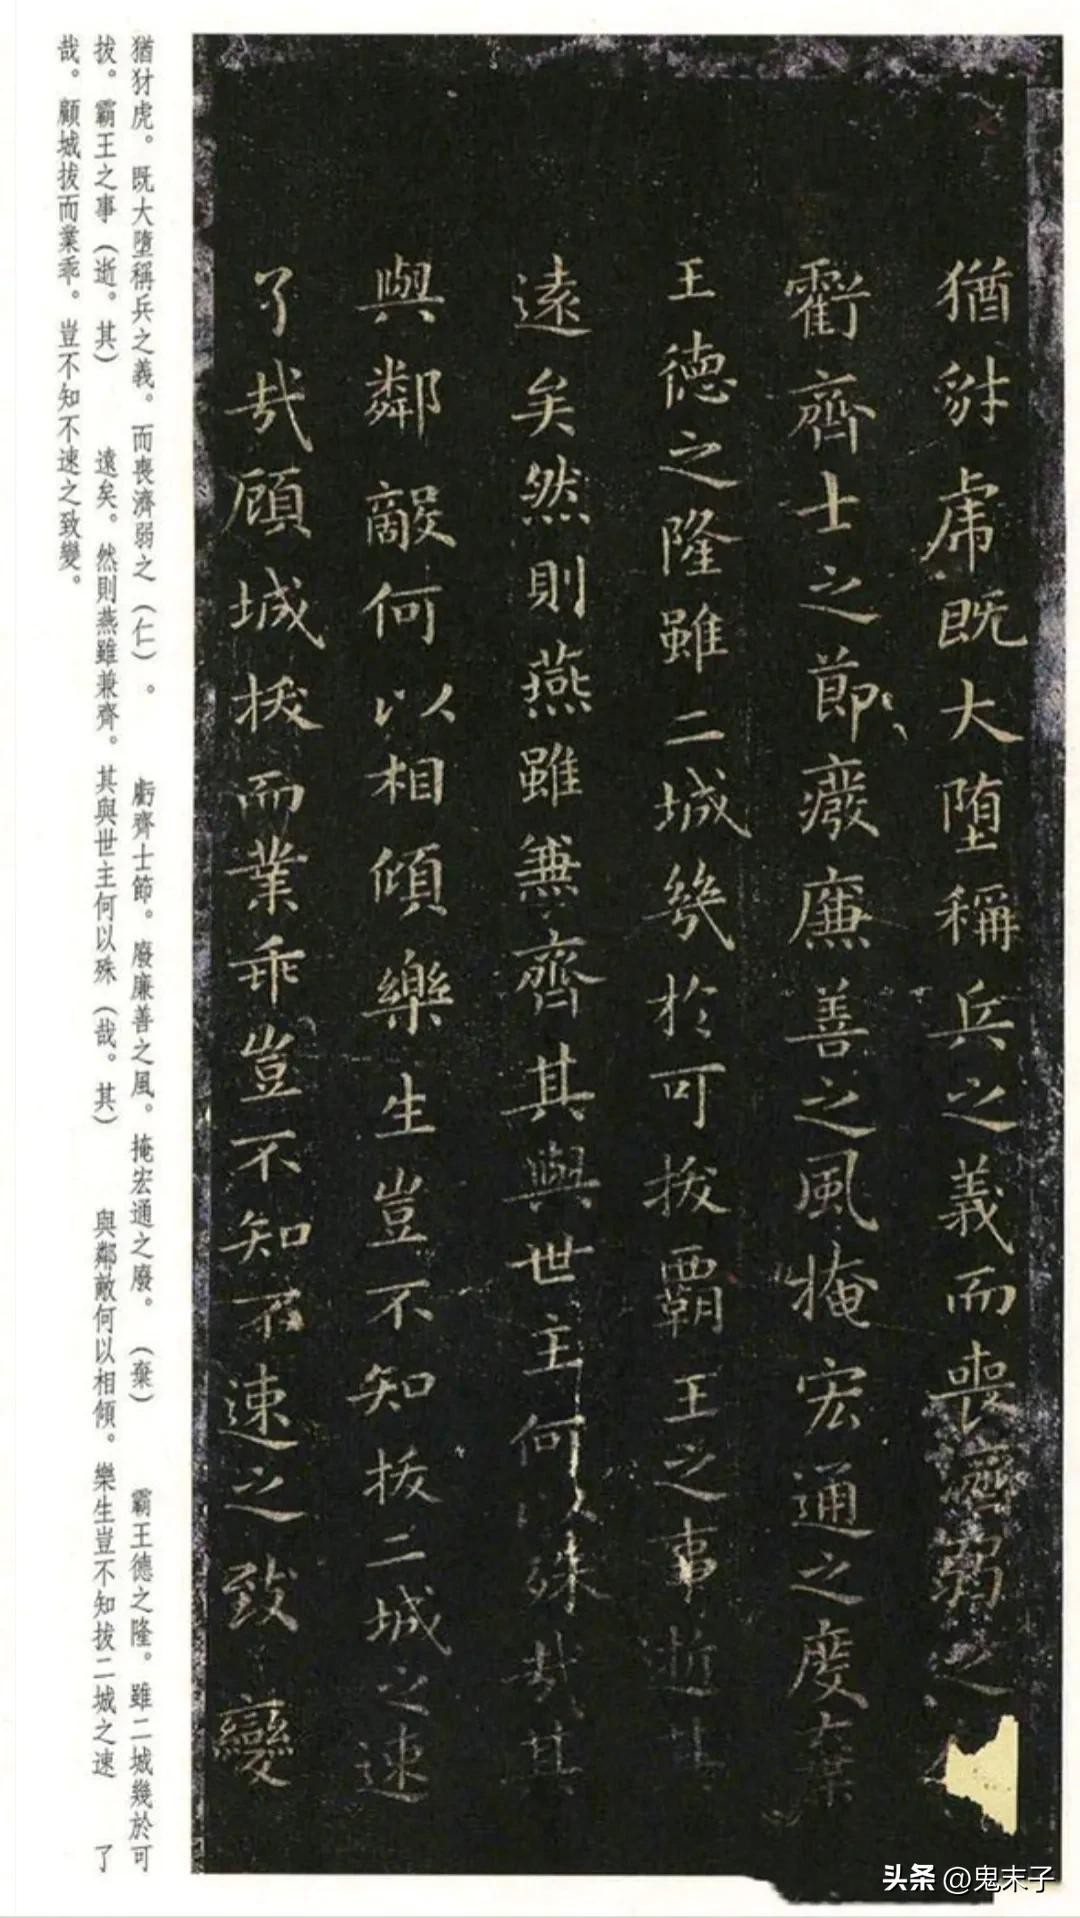 猶豺虎既大墮稱兵之義而喪濟弱之
虧齊士之節癈廉善之風掩宏通之度棄
王德之隆雖二城幾於可拔霸王之事逝其
遠矣然則燕雖兼齊其與世主何以殊哉其
與鄰敵何以相傾樂生豈不知拔二城之速
了哉顧城拔而業乖豈不知不速之致變
猶豺虎。既大墮稱兵之義。而喪濟弱之（仁）。 虧齊士節。廢廉善之風。掩宏通之廢。（棄） 霸王德之隆。雖二城幾於可
拔。霸王之事（逝。其） 遠矣。然則燕雖兼齊。其與世主何以殊（哉。其） 與鄰敵何以相傾。樂生豈不知拔二城之速 了
哉。顧城拔而業乖。豈不知不速之致變。
头条 @鬼末子